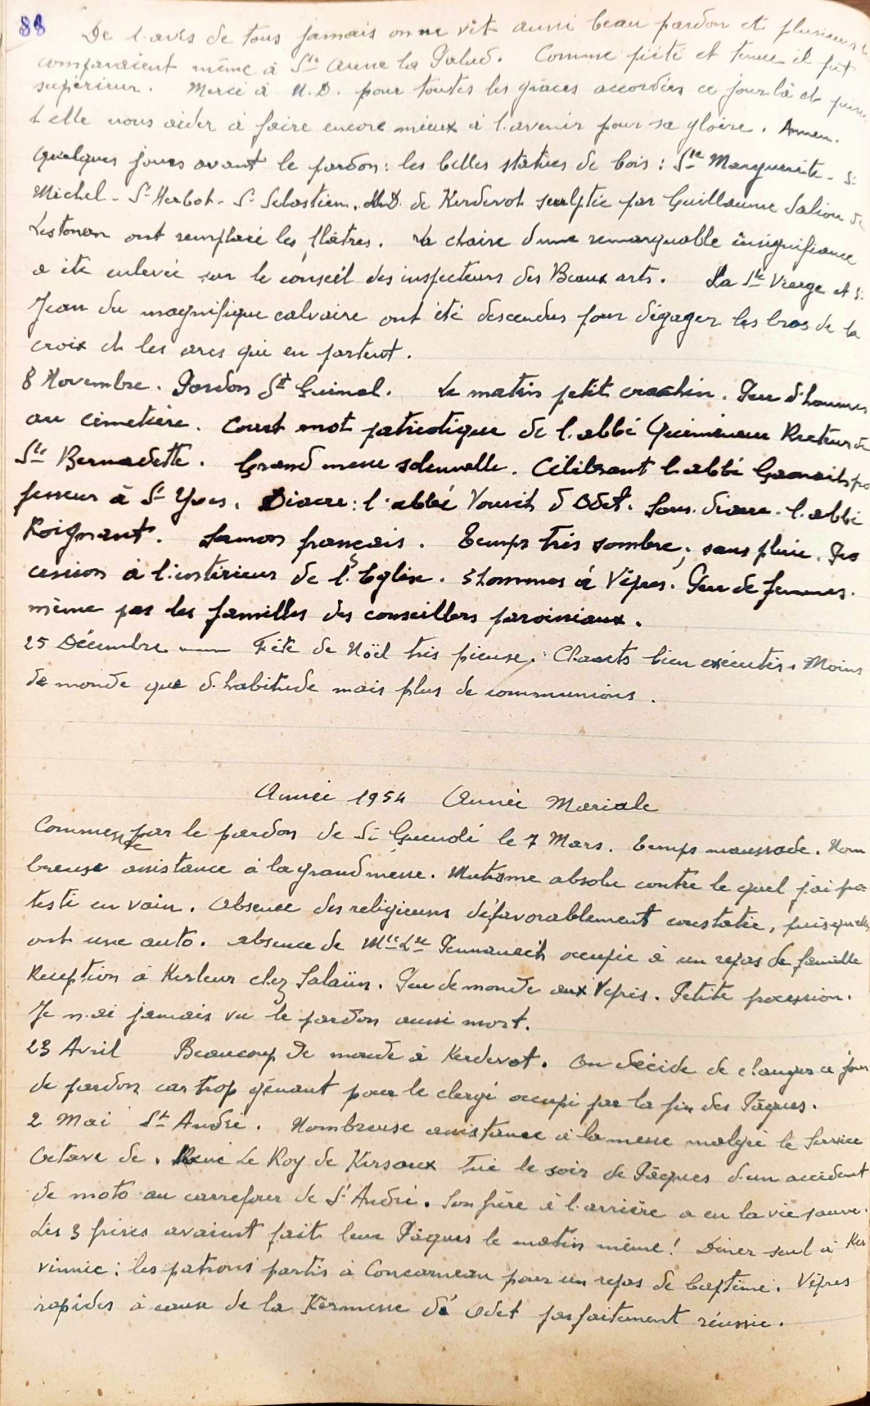 88
De l'avis de tous jamais on ne vit aussi beau pardon et plusieurs le
comparaient même à Ste Anne la Palud. Comme piété et tenue il fut
supérieur. Merci à N.D. pour toutes les grâces accordées ce jour là et puisse
t'elle nous aider à faire encore mieux à l'avenir pour sa gloire. Amen.
Quelques jours avant le pardon : les belles statues de bois : Ste Marguerite - St
Michel - St Herbot - St Sébastien, N.D. de Kerdévot sculptée par Guillaume Saliou de
Lestonan ont remplacé les plâtres. La chaire d'une remarquable insignifiance
a été enlevée sur le conseil des inspecteurs des Beaux arts. La Ste Vierge et St
Jean du magnifique calvaire ont été descendus pour dégager les bras de la
croix et les arcs qui en partent.
8 Novembre. Pardon St Guinal. Le matin petit crachin. Peu d'hommes
au cimetière. Court mot patriotique de l'abbé Quéméneur Recteur de
Ste Bernadette. Grand messe solennelle. Célébrant l'abbé pro
fesseur à St Yves. Diacre : l'abbé d'Odet. Sous-diacre - l'abbé
Roignant. Sermon français. Temps très sombre, sans pluie. Pro
cession à l'intérieur de l'Eglise. 5 hommes à Vêpres. Peu de femmes.
même pas les familles des conseillers paroissiaux.
25 Décembre —— Fête de Noël très pieuse. Chants bien exécutés. Moins
de monde que d'habitude mais plus de communions.
Année 1954 Année Mariale
Commence par le pardon de St Guénolé le 7 Mars. Temps maussade. Nom
breuse assistance à la grand messe. Mutisme absolu contre lequel j'ai pro
testé en vain. Absence des religieuses défavorablement constatée, puisqu'elles
ont une auto. Absence de Melle Lse Pennanech occupée à un repas de famille
Réception à Kerleur chez Salaün. Peu de monde aux Vêpres. Petite procession.
Je n'ai jamais vu le pardon aussi mort.
23 Avril Beaucoup de monde à Kerdévot. On décide de changer ce jour
de pardon car trop gênant pour le clergé occupé par la fin des Pâques.
2 Mai St André. Nombreuse assistance à la messe malgré le Service
Octave de. René Le Roy de Kersaux tué le soir de Pâques d'un accident
de moto au carrefour de St André. Son frère à l'arrière a eu la vie sauve.
Les 3 frères avaient fait leur Pâques le matin même ! Diner seul à Ker
vinnic : les patrons partis à Concarneau pour un repas de baptême. Vêpres
rapides à cause de la Kermesse d'Odet parfaitement réussie.